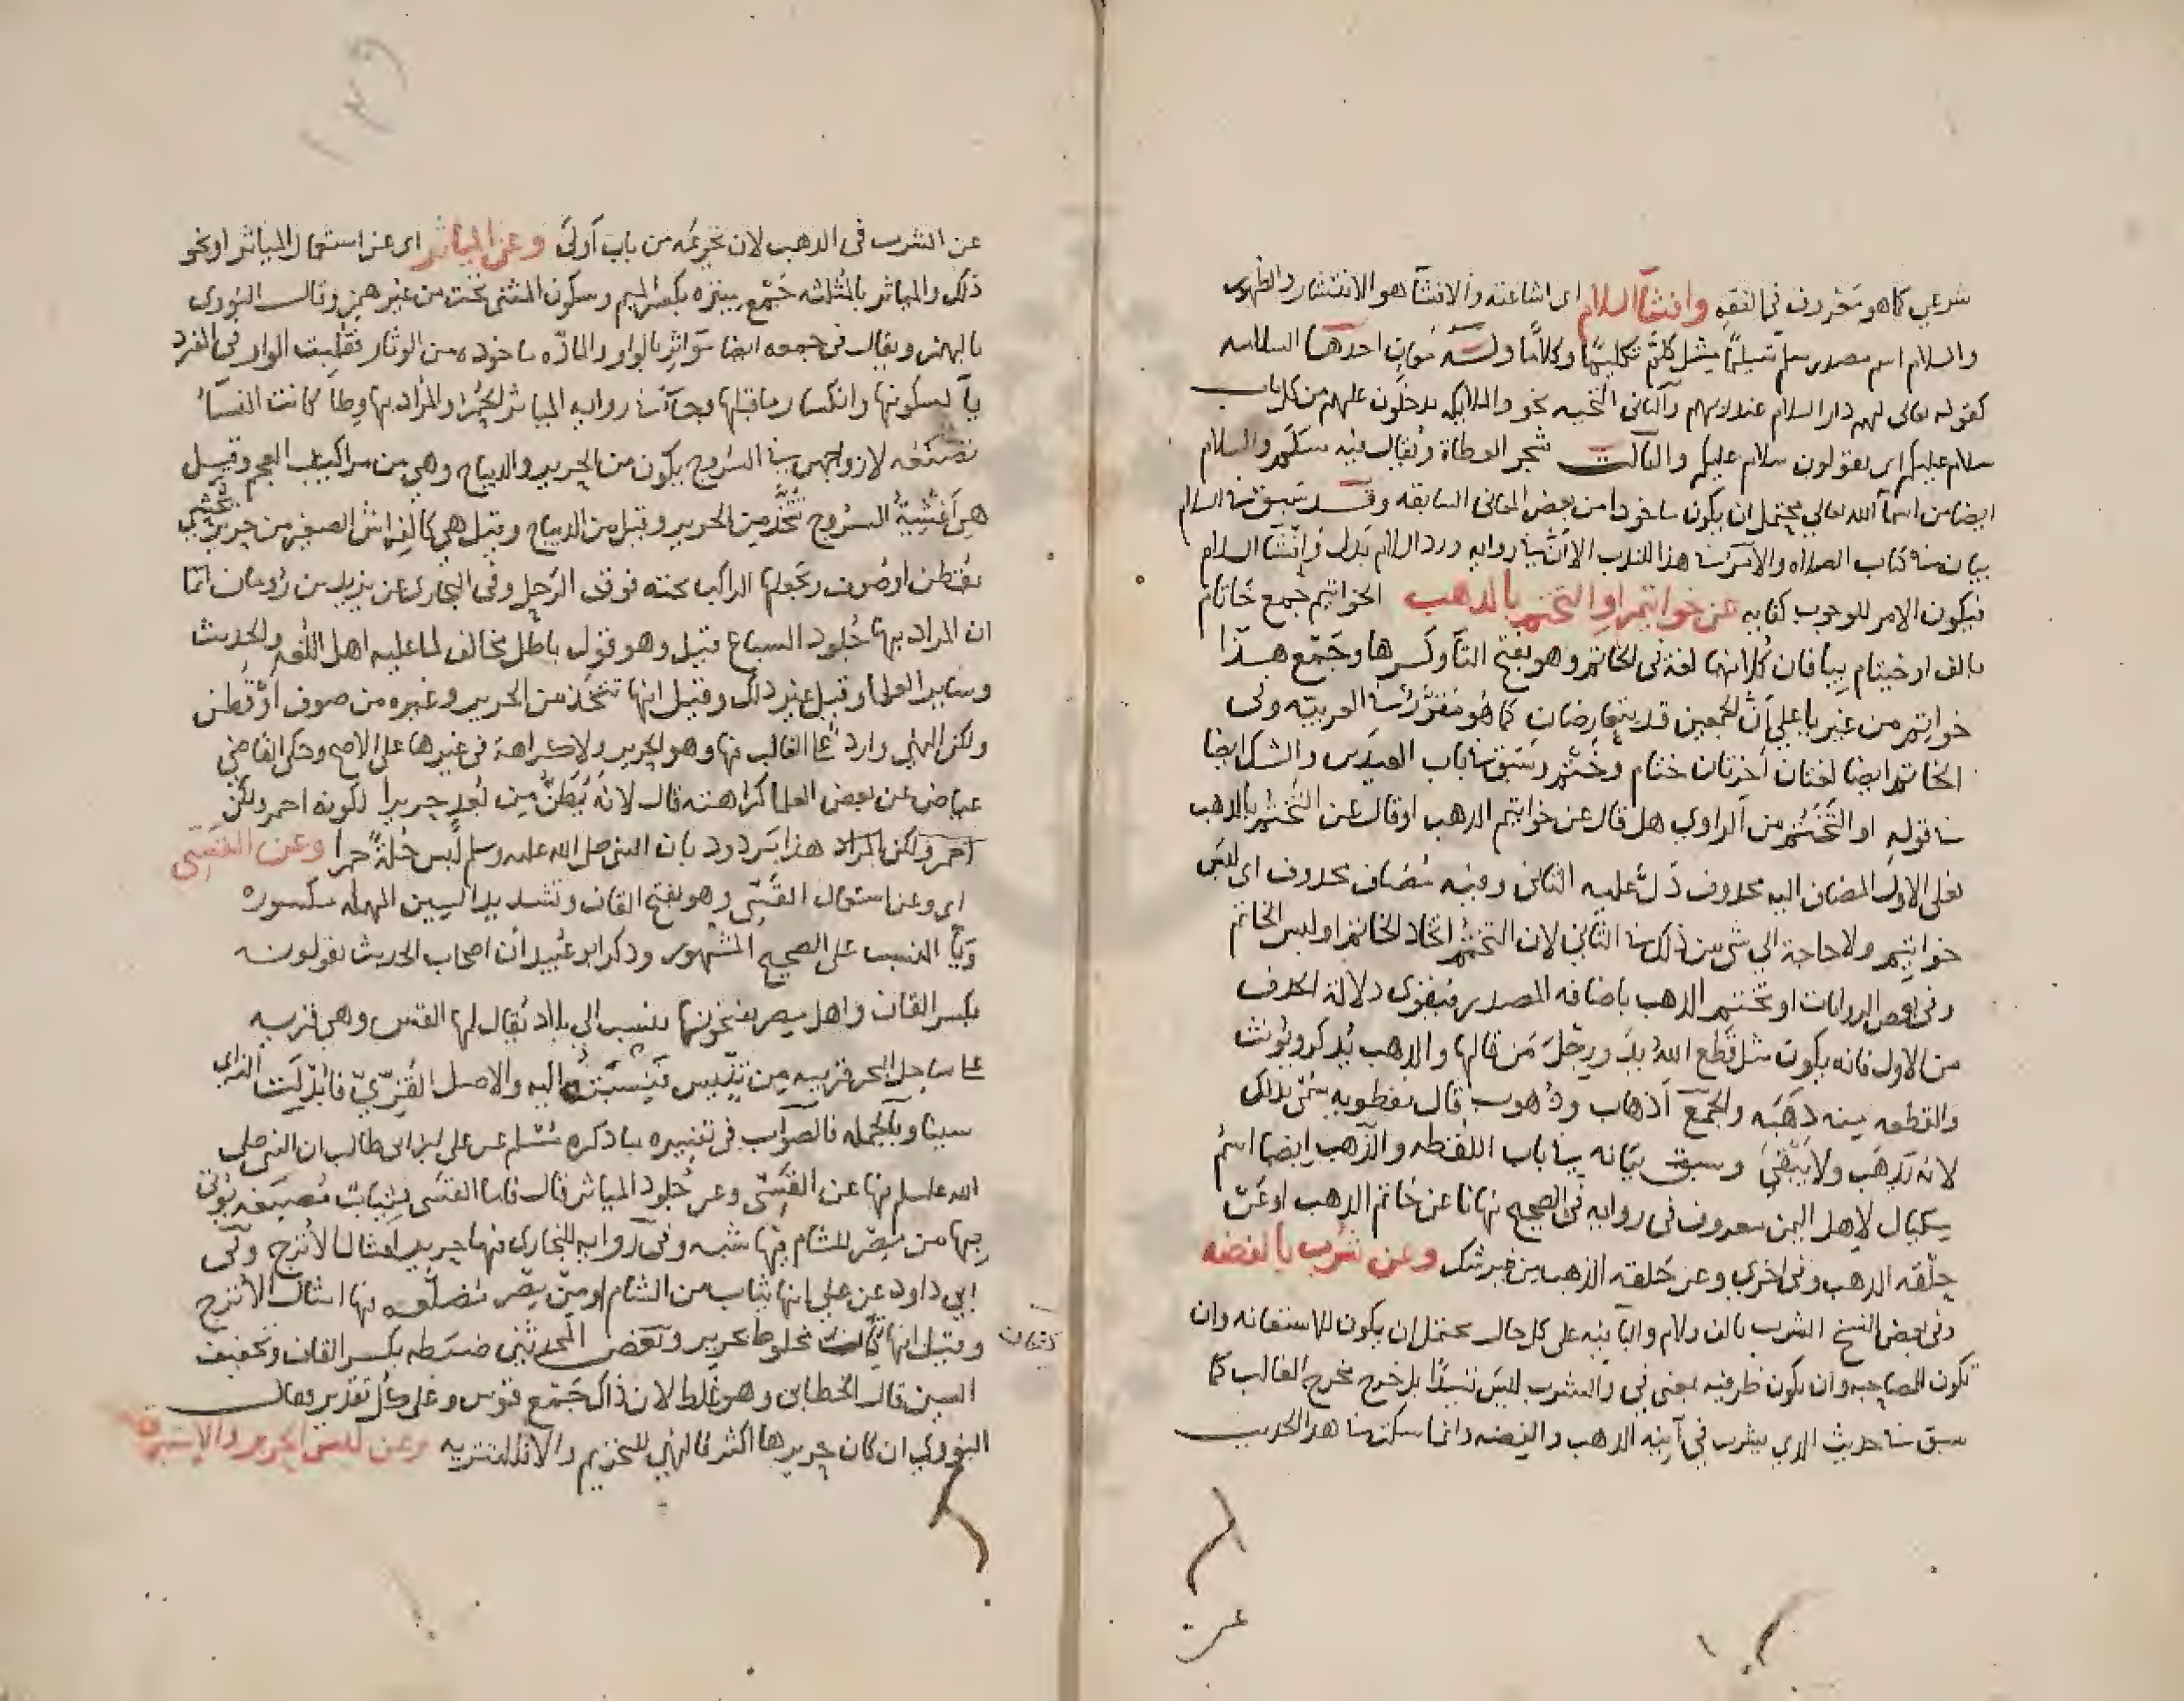 شرعي كما هو معروف في الفقه وافشا السلام اي اشاعته والافشا هو الانتشار والظهور
والسلام اسم مصدر سلم تسليما مثل كلم تكليما وكلاما وله معان احدها السلامه
كقوله تعالى لهم دار السلام عند ربهم والثاني التحيه نحو والملايكه يدخلون عليهم من كل باب
سلام عليكم اي يقولون سلام عليكم والثالث شجر العظاة ويقال فيه سلم والسلام
ايضا من اسما الله تعالى يحتمل ان يكون ماخوذا من بعض المعاني السابقه وقد سبق السلام
بيانه في كتاب الصلاه والامر في هذا للندب الا ان في روايه ورد السلام بدل وافشا السلام
فيكون الامر للوجوب كفايه عن خواتيم او التختم بالذهب الخواتيم جمع خاتام
بالف او خيتام بيا فان كلا منهما لغة في الخاتم وهو بفتح التا وكسرها وجمع هذا
خواتم من غير يا على ان الجمعين قد يتقارضان كما هو مقرر في العربيه وفي
الخاتم ايضا لغتان اخرتان ختام وختم وسبق في باب العيدين والشك ايضا
في قوله او التختم من الراوي هل قال عن خواتيم الذهب او قال عن التختم بالذهب
فعلى الاول المضاف اليه محذوف دل عليه الثاني وفيه مضاف محذوف اي لبس
خواتيم ولا حاجة الي شي من ذلك في الثاني لان التختم اتخاذ الخاتم او لبس الخاتم
وفي بعض الروايات او تختم الذهب باضافه المصدر فيقوى دلالة الحذف
من الاول فانه يكون مثل قطع الله يد ورجل من قالها والذهب يذكر ويؤنث
والقطعه منه ذهبه والجمع أذهاب وذهوب قال نفطويه سمى بذلك
لانه يذهب ولا يبقى وسبق بيانه في باب اللقطه والذهب ايضا اسم
مكيال لاهل اليمن معروف في روايه في الصحيح نهانا عن خاتم الذهب او عن
حلقه الذهب وفي اخرى وعن حلقه الذهب من غير شك وعن شرب بالفضه
وفي بعض النسخ الشرب بالف ولام والبا فيه على كل حال يحتمل ان يكون للاستعانه وان
تكون للمصاحبه وان يكون ظرفيه بمعنى في والشرب ليس قيدا بل خرج مخرج الغالب كما
سبق في حديث الذي يشرب في آنيه الذهب والفضه وانما سكت في هذا الحديث
عن الشرب في الذهب لان تحريمه من باب أولى وعن المياثر اي عن استعمال المياثر او نحو
ذلك والمياثر بالمثلثه جمع ميثره بكسر الميم وسكون المثنى تحت من غير همز وقال النووي
بالهمز ويقال في جمعه ايضا مواثر بالواو والمادّه ماخوذه من الوثار فقلبت الواو في المفرد
يآ لسكونها وانكسار ما قبلها وجآ في روايه المياثر الحمر والمراد بها وطآ كانت النسآ
تصنعه لازواجهن في السروج يكون من الحرير والديباج وهي من مراكيب العجم وقيل
هي أغشيةُ السروج تتخذ من الحرير وقيل من الديباج وقيل هي كالفراش الصغير من حرير تحشى
بقطن او صوف ويجعلها الراكب تحته فوق الرحل وفي البخاري عن يزيد بن رومان انما
ان المراد بها جلود السباع قيل وهو قول باطل مخالف لما عليه اهل اللغه والحديث
وساير العلما وقيل غير ذلك وقيل انها تتخذ من الحرير وغيره من صوف او قطن
ولكن النهي وارد علا الغالب منها وهو الحرير ولا كراهة في غيرها على الاصح وحكى القاضي
عياض عن بعض العلما كراهته قال لانه يُظنّ من بُعد حريرا لكونه احمر ولكن
احمر ولكن المراد هذا مردود بان النبي صلى الله عليه وسلم لبس حُلةً حمرا وعن القسّي
اي وعن استعمال القسّي وهو بفتح القاف وتشديد السين المهمله مكسوره
ويآ النسب على الصحيح المشهور وذكر ابو عبيد ان اصحاب الحديث يقولونه
بكسر القاف واهل مصر يفتحونها ينسب الى بلاد يقال لها القس وهي قريبه
علا ساحل البحر قريبه من تنّيس فنسبت اليه والاصل القزّيّ فابدلت الزاي
سينا وبالجمله فالصواب في تفسيره ما ذكره مسلم عن علي ابن ابي طالب ان النبي صلى
الله علسلم نها عن القسّي وعن جلود المياثر قال فاما القسى فثياب مضلعه يؤتى
بها من مصر للشام فيها شبه وفي روايه للبخاري فيها حرير امثال الاترج وفي
ابي داود عن علي انها ثياب من الشام او من مصر مضلعه فيها امثال الاترج
وقيل انها كتان مخلوط بحرير وبعض المحدثين ضبطه بكسر القاف وتخفيف
كتان
السين قال الخطابي وهو غلط لان ذاك جمع قوس وعلى كل تقدير فقال
النووي ان كان حريرها اكثر فالنهي للتحريم والا فللتنزيه وعن لبس الحرير والاستبرق